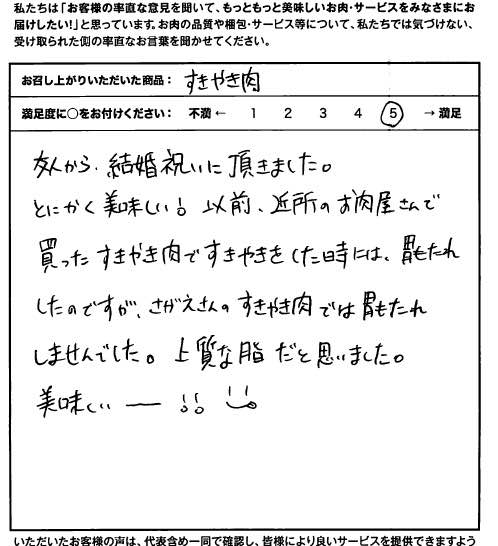 私たちは「お客様の率直な意見を聞いて、もっともっと美味しいお肉・サービスをみなさまにお
届けしたい!」と思っています。お肉の品質や梱包・サービス等について、私たちでは気づけない、
受け取られた側の率直なお言葉を聞かせてください。
お召し上がりいただいた商品： すきやき肉
満足度に○をお付けください： 不満 ← 1 2 3 4 5 → 満足
友人から、結婚祝いに頂きました。
とにかく美味しい! 以前、近所のお肉屋さんで
買ったすきやき肉ですきやきをした時には、胃もたれ
したのですが、さがえさんのすきやき肉では胃もたれ
しませんでした。上質な脂だと思いました。
美味しいー!!
いただいたお客様の声は、代表含め一同で確認し、皆様により良いサービスを提供できますよう